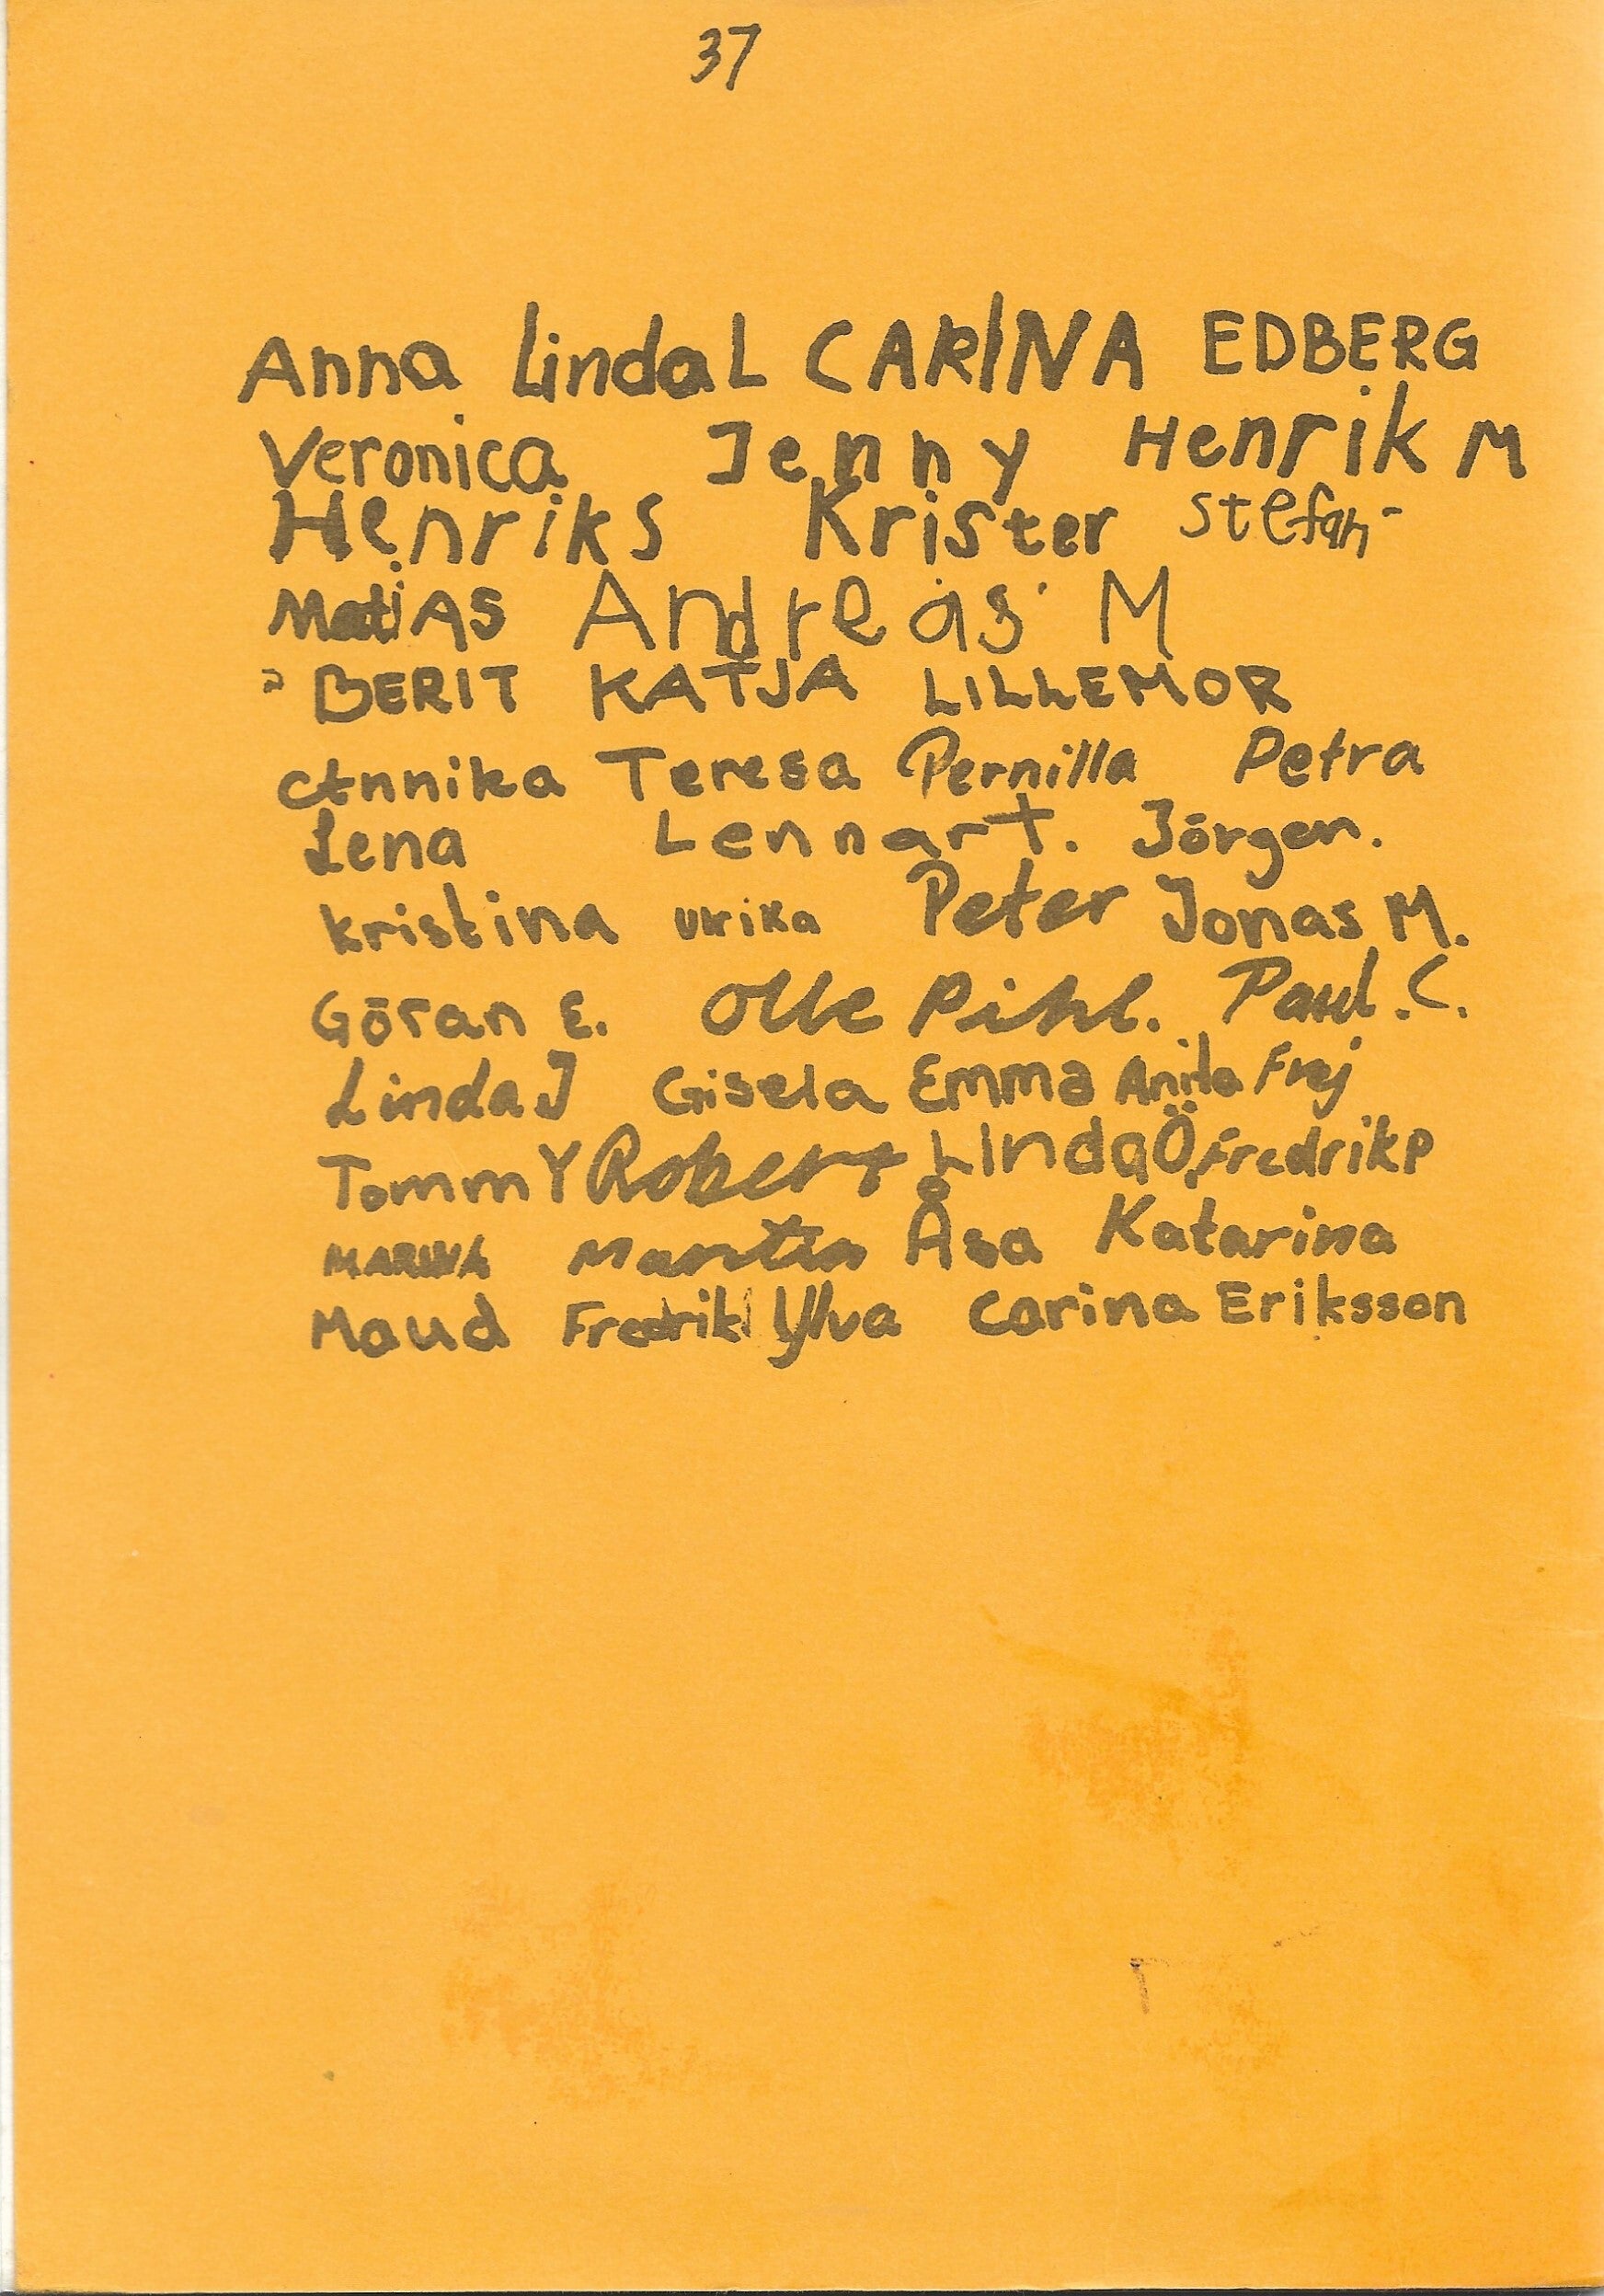 37
Anna Linda L CARINA EDBERG
Veronica Jenny Henrik M
Henrik S Krister Stefan
MatiAS Andreas M
BERIT KATJA LILLEMOR
Annika Teresa Pernilla Petra
Lena Lennart. Jörgen.
Kristina Ulrika Peter Jonas M.
Göran E. Olle Pihl. Paul. C.
Linda J Gisela Emma Anita Frej
TommY Robert LIndaÖ Fredrik P
MARINA Martin Åsa Katarina
Maud Fredrik Ylva Carina Eriksson